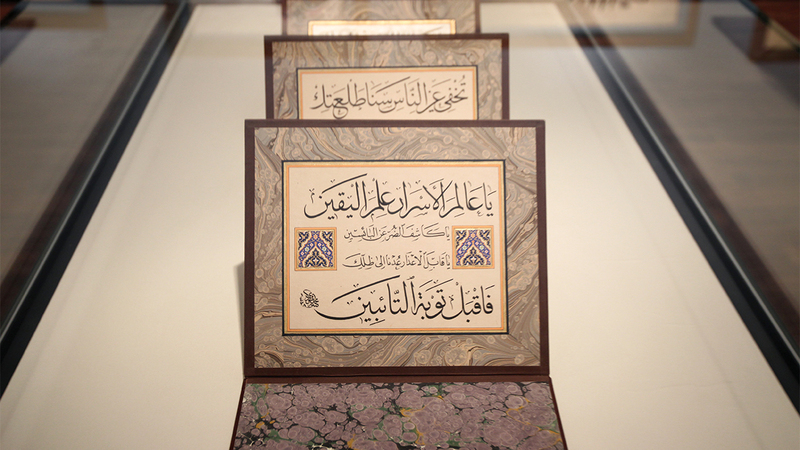 تُخْفِي عَنِ النَّاسِ سَنَا طَلْعَتِكَ
يَا عَالِمَ الْاَسْرَارِ عِلْمَ الْيَقِينِ
يَا كَاشِفَ الضُّرِّ عَنِ الْبَائِسِينَ
يَا قَابِلَ الْاَعْذَارِ عُدْنَا اِلَى ظِلِّكَ
فَاقْبَلْ تَوْبَةَ التَّائِبِينَ